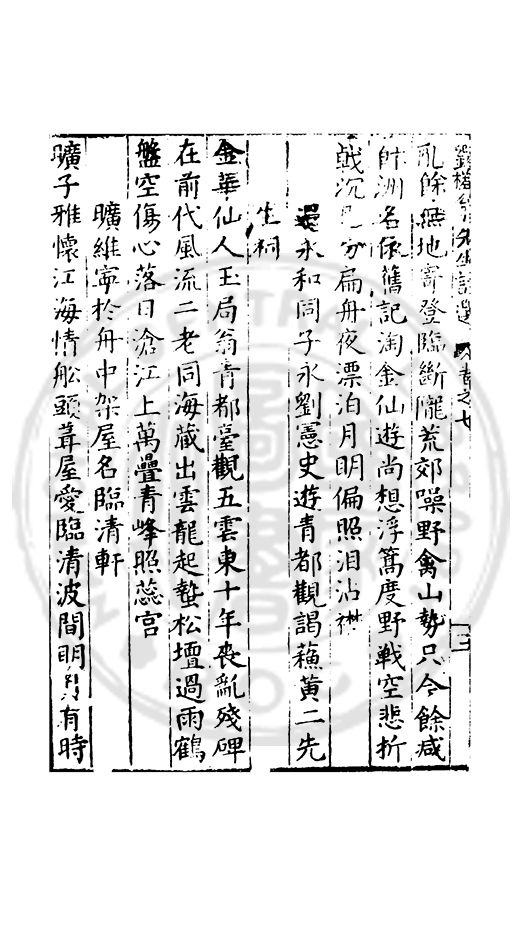 劉槎翁先生詩選 卷之七 三
亂餘無地寄登臨斷隴荒郊噪野禽山勢只今餘咸
洲名依舊記淘金仙遊尚想浮篙度野戰空悲折
戟沉 扁舟夜漂泊月明偏照泪沾襟
永和同子永劉憲史遊青都觀謁蘓黃二先
生祠
金華仙人玉局翁青都臺觀五雲東十年喪亂殘碑
在前代風流二老同海藏出雲龍起蟄松壇過雨鶴
盤空傷心落日滄江上萬疊青峰照蕊宫
曠維寧於舟中架屋名臨清軒
曠子雅懷江海情舩頭葺屋愛臨清波間明 有時